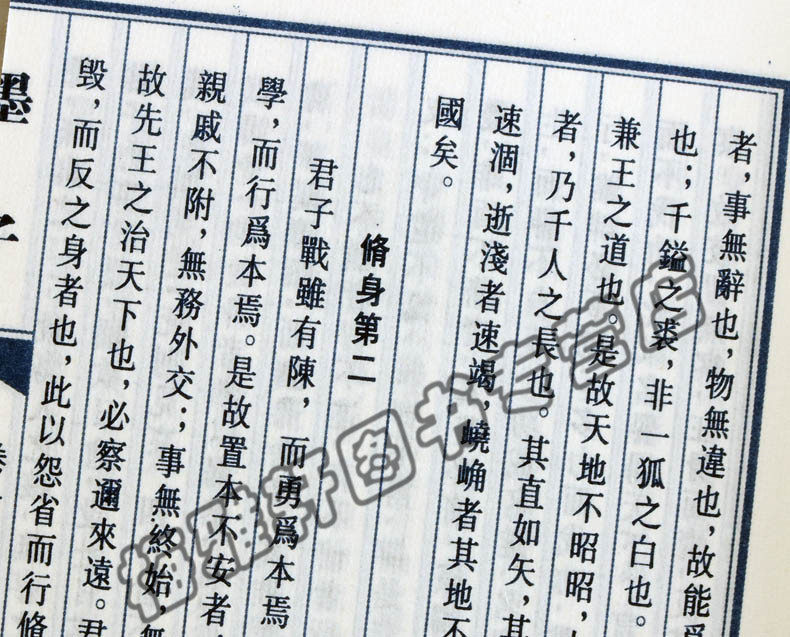 者，事無辭也，物無違也，故能爲
也；千鎰之裘，非一狐之白也。
兼王之道也。是故天地不昭昭，
者，乃千人之長也。其直如矢，其
速涸，逝淺者速竭，嶢崅者其地不
國矣。
脩身第二
君子戰雖有陳，而勇爲本焉
學，而行爲本焉。是故置本不安者，
親戚不附，無務外交；事無終始，無
故先王之治天下也，必察邇來遠。君
毀，而反之身者也，此以怨省而行脩
墨子
雅軒图书专营店